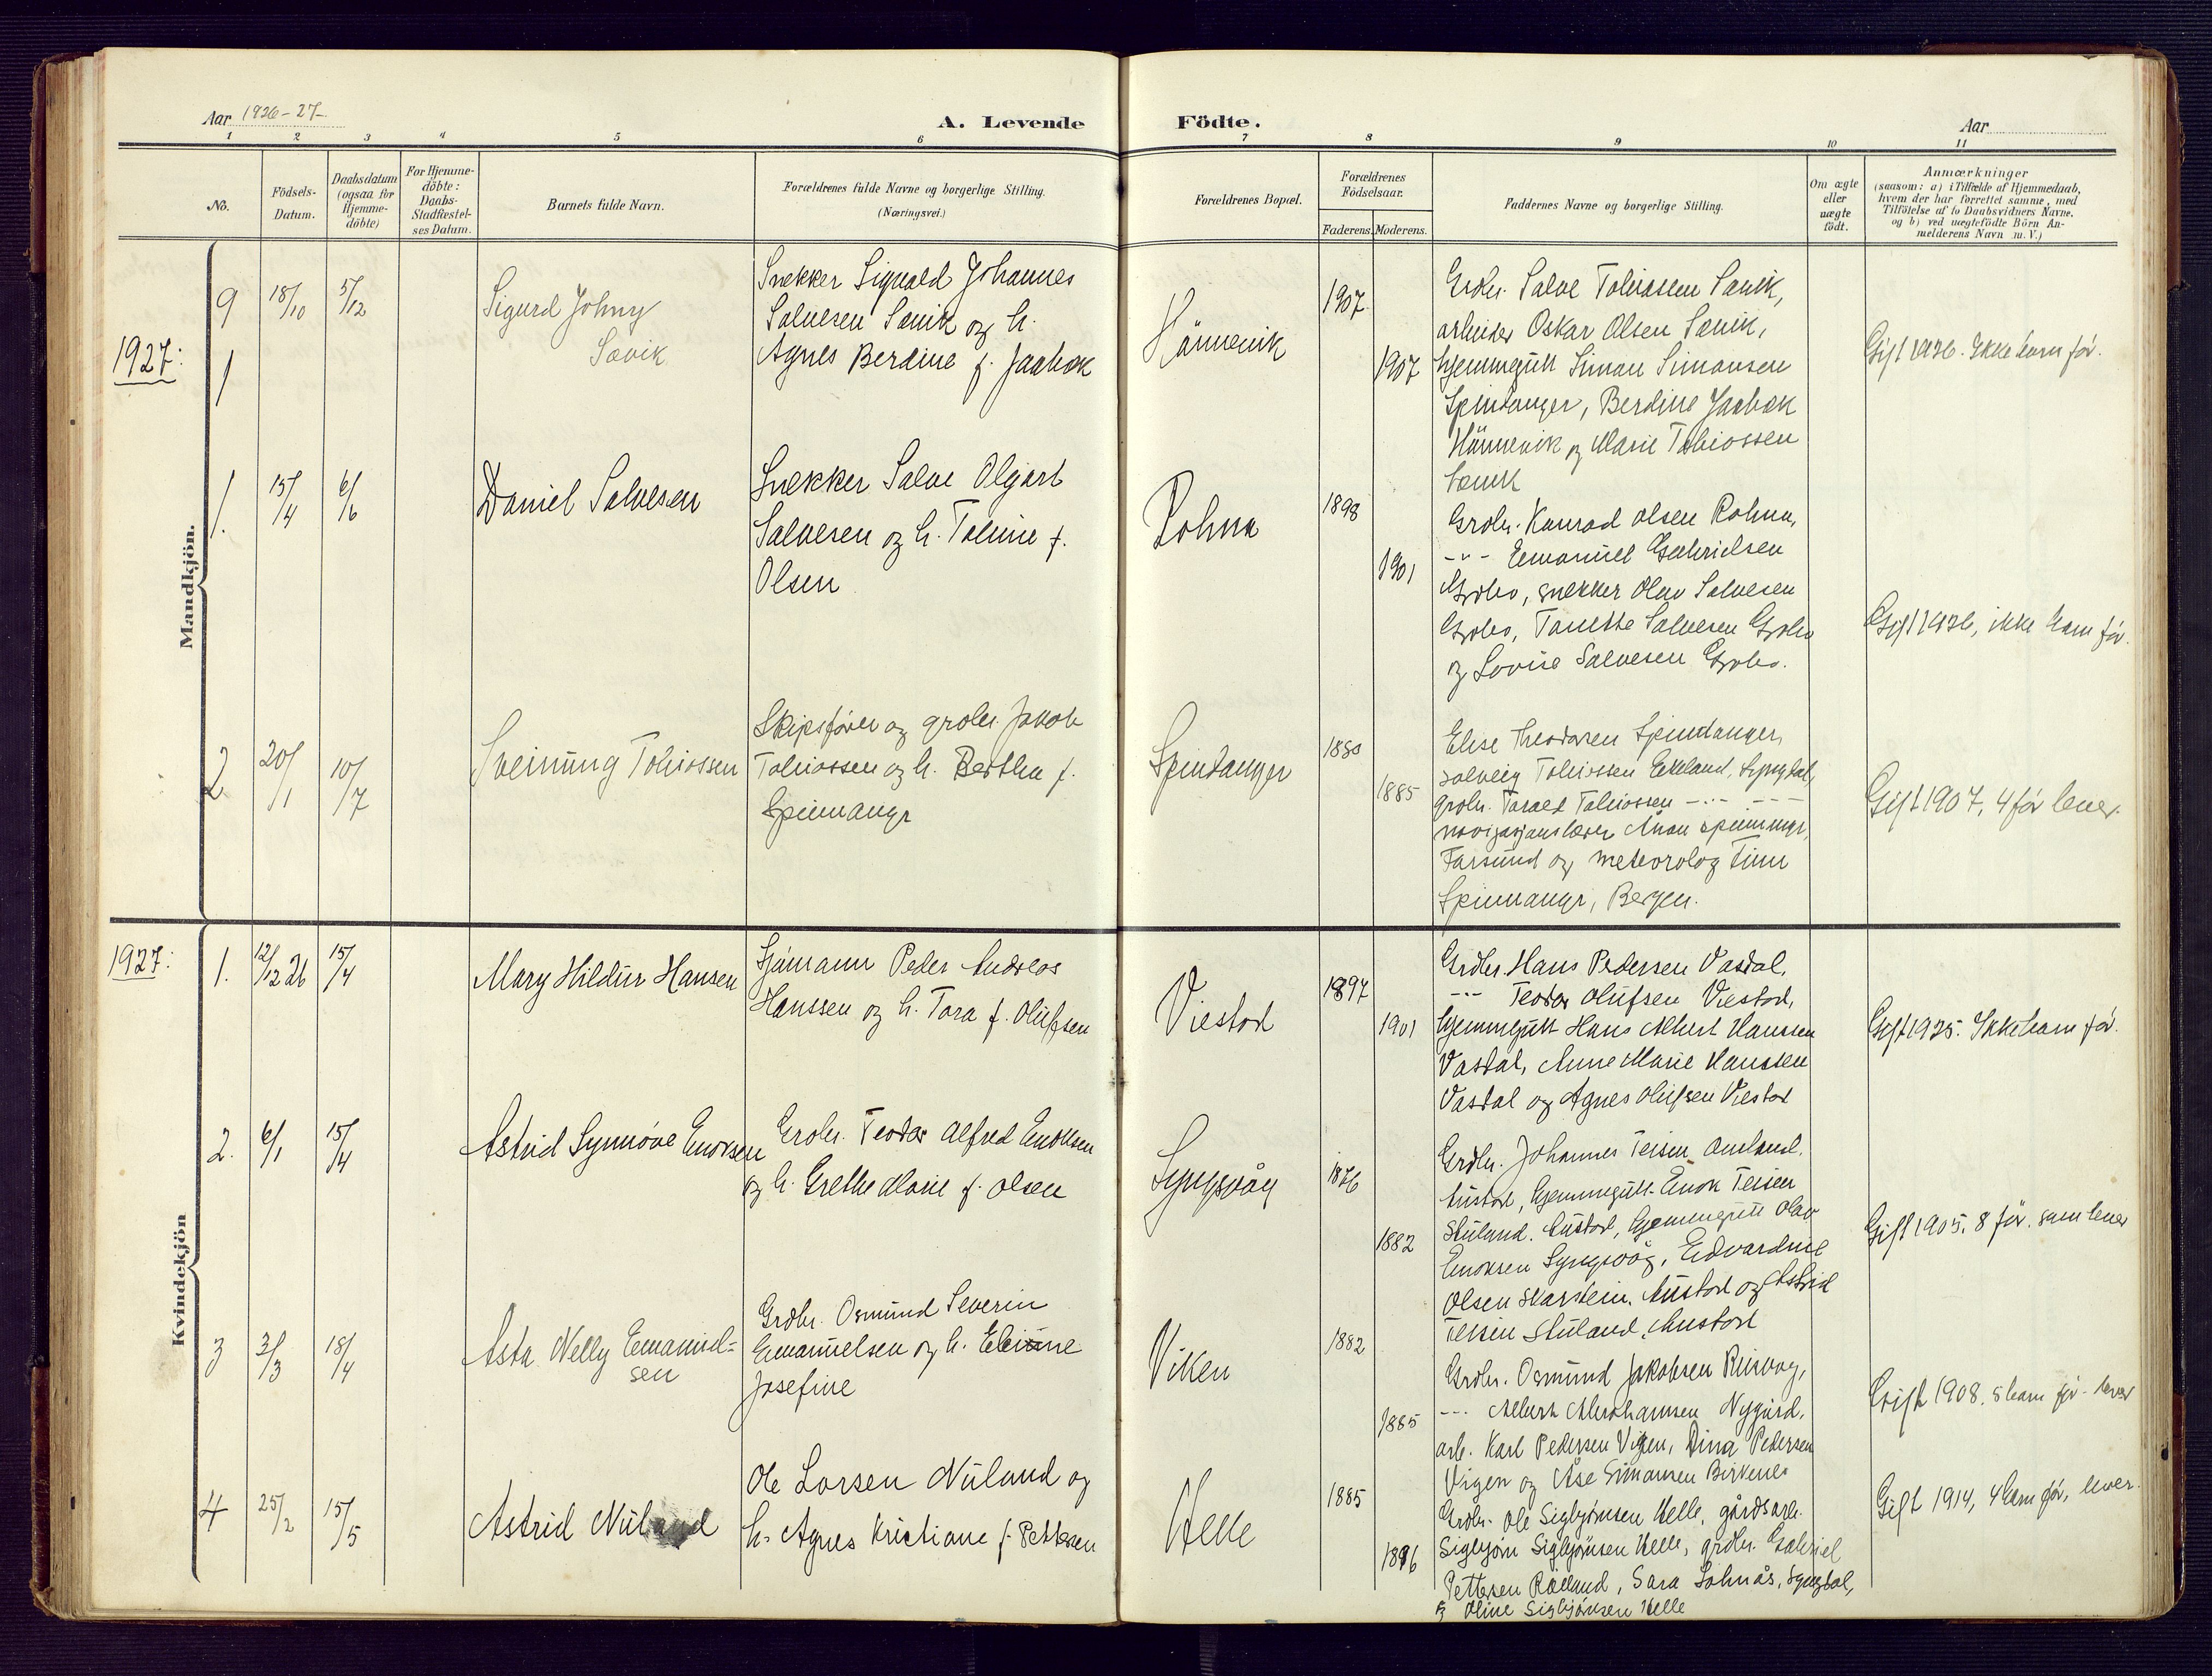 Aar 1926-27-
A. Levende
Födte.
Aar
1 2 3 4 5 6 7 8 9 10 11
No.
Födsels-
Datum.
Daabsdatum
(ogsaa for
Hjemme-
döbte)
For Hjemme-
döbte:
Daabs-
Stadfæstel-
ses Datum.
Barnets fulde Navn.
Forældrenes fulde Navne og borgerlige Stilling.
(Næringsvei.)
Forældrenes Bopæl.
Forældrenes
Födselsaar.
Faderens. Moderens.
Faddernes Navne og borgerlige Stilling.
Om ægte
eller
uægte
födt.
Anmærkninger
(saasom: a) i Tilfælde af Hjemmedaab,
hvem der har forrettet samme, med
Tilföielse af to Daabsvidners Navne.
og b) ved uægtefödte Börn An-
melderens Navn m. V.)
Mandkjön.
1927:
9 18/10 5/12
1
Sigurd Johny
Savik
Snekker Sigvald Johannes
Salvesen Savik og h.
Agnes Berdine f. Jaabæk
Hånnevik
1907
1907
Grdbr. Salve Tobiassen Savik,
arbeider Oskar Olsen Savik,
hjemmegutt Simon Simonsen
Spindanger, Berdine Jaabæk
Hånnevik og Marie Tobiassen
Savik
Gift 1926. Ikke barn før.
1. 15/4 6/6
Daniel Salvesen
Snekker Salve Olgart
Salvesen og h. Tobine f.
Olsen
Rohna
1898
1901
Grdbr. Konrad Olsen Rohna,
-"- Emanuel Gabrielsen
Grobo, snekker Olav Salvesen
Grobo, Tanette Salvesen Grobo
og Lovise Salvesen Grobo.
Gift 1926, ikke barn før.
2 20/1 10/7
Sveinung Tobiassen
Skipsfører og grdbr. Jakob
Tobiassen og h. Berthe f.
Spinnangr
Spindanger
1880
1885
Elise Theodorsen Spindanger,
Solveig Tobiassen Ekeland, Lyngdal,
grdbr. Torald Tobiassen -"- -"-
navigasjonslærer Spinnangr,
Farsund og meteorolog Finn
Spinnangr, Bergen.
Gift 1907, 4 før lever.
Kvindekjön
1927:
1. 12/12 26 15/4
Mary Hildur Hansen
Sjømann Peder Andreas
Hanssen og h. Tora f. Olufsen
Viestod
1897
1901
Grdbr. Hans Pedersen Vasdal,
-"- Teodor Olufsen Viestod,
hjemmegutt Hans Albert Hanssen
Vasdal, Anne Marie Hanssen
Vasdal og Agnes Olufsen Viestod
Gift 1925. Ikke barn før.
2. 6/1 15/4
Astrid Synnøve Enoksen
Grdbr. Teodor Alfred Enoksen
og h. Grethe Marie f. Olsen
Lyngsvåg
1876
1882
Grdbr. Johannes Teisen Omland.
Austad, hjemmegutt Enok Teisen
Stuland. Austad, hjemmegutt Olav
Enoksen Lyngsvåg, Edvardine
Olsen Skarstein. Austad og Astrid
Teisen Stuland, Austad
Gift 1905. 8 før. som lever
3 3/3 18/4
Asta Nelly Emanuel-
sen
Grdbr. Osmund Severin
Emanuelsen og h. Eline
Josefine
Viken
1882
1885
Grdbr. Osmund Jakobsen Risvag,
-"- Albert Abrahamsen Nygård,
arb. Karl Pedersen Vigen, Dina Pedersen
Vigen og Åse Simonsen Birkenes
Gift 1908, 5 barn før - lever
4 25/2 15/5
Astrid Nuland
Ole Larsen Nuland og
h. Agnes Kristiane f. Pettersen
Helle
1885
1896
Grdbr. Ole Sigbjørnsen Helle, gårdsarb.
Sigbjørn Sigbjørnsen Helle, grdbr. Gabriel
Pettersen Rølland, Sara Solnås, Lyngdal,
og Oline Sigbjørnsen Helle
Gift 1914, 4 barn før, lever.